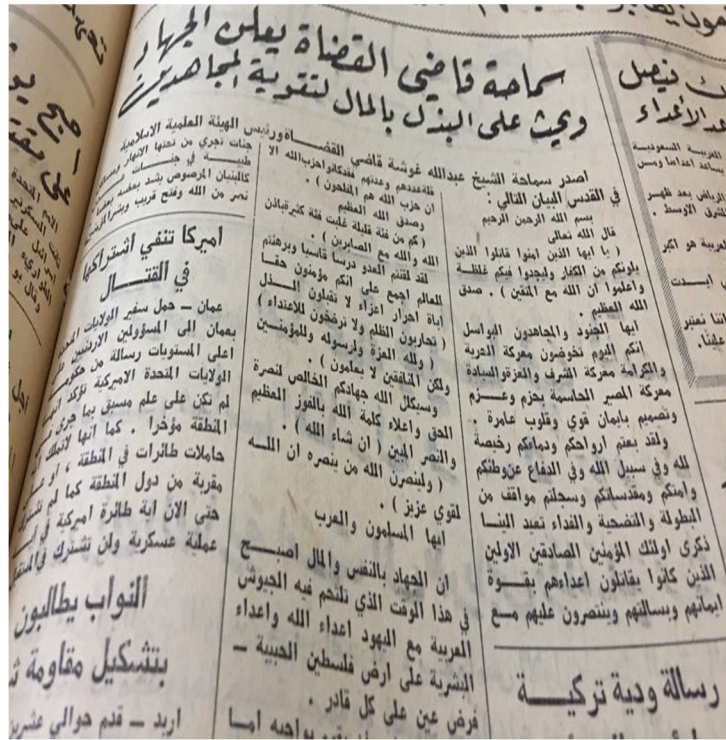 سماحة قاضي القضاة يعلن الجهاد
ويحث على البذل بالمال لتقوية المجاهدين
اصدر سماحة الشيخ عبدالله غوشة قاضي القضاة ورئيس الهيئة العلمية الاسلامية
في القدس البيان التالي:
بسم الله الرحمن الرحيم
قال الله تعالى
( يا ايها الذين امنوا قاتلوا الذين
يلونكم من الكفار وليجدوا فيكم غلظة
واعلموا ان الله مع المتقين ) . صدق
الله العظيم .
ايها الجنود والمجاهدون البواسل
انكم اليوم تخوضون معركة الحرية
والكرامة معركة الشرف والعزة والسيادة
معركة المصير الحاسمة بحزم وعزم
وتصميم بايمان قوي وقلوب عامرة .
ولقد بعتم ارواحكم ودماءكم رخيصة
لله وفي سبيل الله وفي الدفاع عن وطنكم
وامتكم ومقدساتكم وسجلتم مواقف من
البطولة والتضحية والفداء تعيد الينا
ذكرى اولئك المؤمنين الصادقين الاولين
الذين كانوا يقاتلون اعداءهم بقوة
ايمانهم وبسالتهم وينتصرون عليهم مع
قلة عددهم وعدتهم فقد كانوا حزب الله الا
ان حزب الله هم المفلحون ) .
وصدق الله العظيم
( كم من فئة قليلة غلبت فئة كثيرة باذن
الله والله مع الصابرين ) .
لقد لقنتم العدو درسا قاسيا وبرهنتم
للعالم اجمع على انكم مؤمنون حقا
اباة احرار اعزاء لا تقبلون الذل
( تحاربون الظلم ولا ترضخون للاعتداء )
( ولله العزة ولرسوله وللمؤمنين
ولكن المنافقين لا يعلمون ) .
وسيكلل الله جهادكم الخالص لنصرة
الحق واعلاء كلمة الله بالفوز العظيم
والنصر المبين ( ان شاء الله ) .
( ولينصرن الله من ينصره ان الله
لقوي عزيز ) .
ايها المسلمون والعرب
ان الجهاد بالنفس والمال اصبح
في هذا الوقت الذي تلتحم فيه الجيوش
العربية مع اليهود اعداء الله واعداء
البشرية على ارض فلسطين الحبيبة –
فرض عين على كل قادر .
جنات تجري من تحتها الانهار
طيبة في جنات
كالبنيان المرصوص يشد بعضه بعضا
نصر من الله وفتح قريب وبشر
اميركا تنفي اشتراكها
في القتال
عمان – حمل سفير الولايات
بعمان الى المسؤولين الاردنيين على
اعلى المستويات رسالة من حكومة
الولايات المتحدة الاميركية تؤكد
لم تكن على علم مسبق بما جرى
المنطقة مؤخرا . كما انها لا تملك
حاملات طائرات في المنطقة ، او
مقربة من دول المنطقة كما لم تشترك
حتى الان اية طائرة اميركية في
عملية عسكرية ولن تشترك في المستقبل
النواب يطالبون
بتشكيل مقاومة
اربد – قدم حوالي عشرين
رسالة ودية تركية